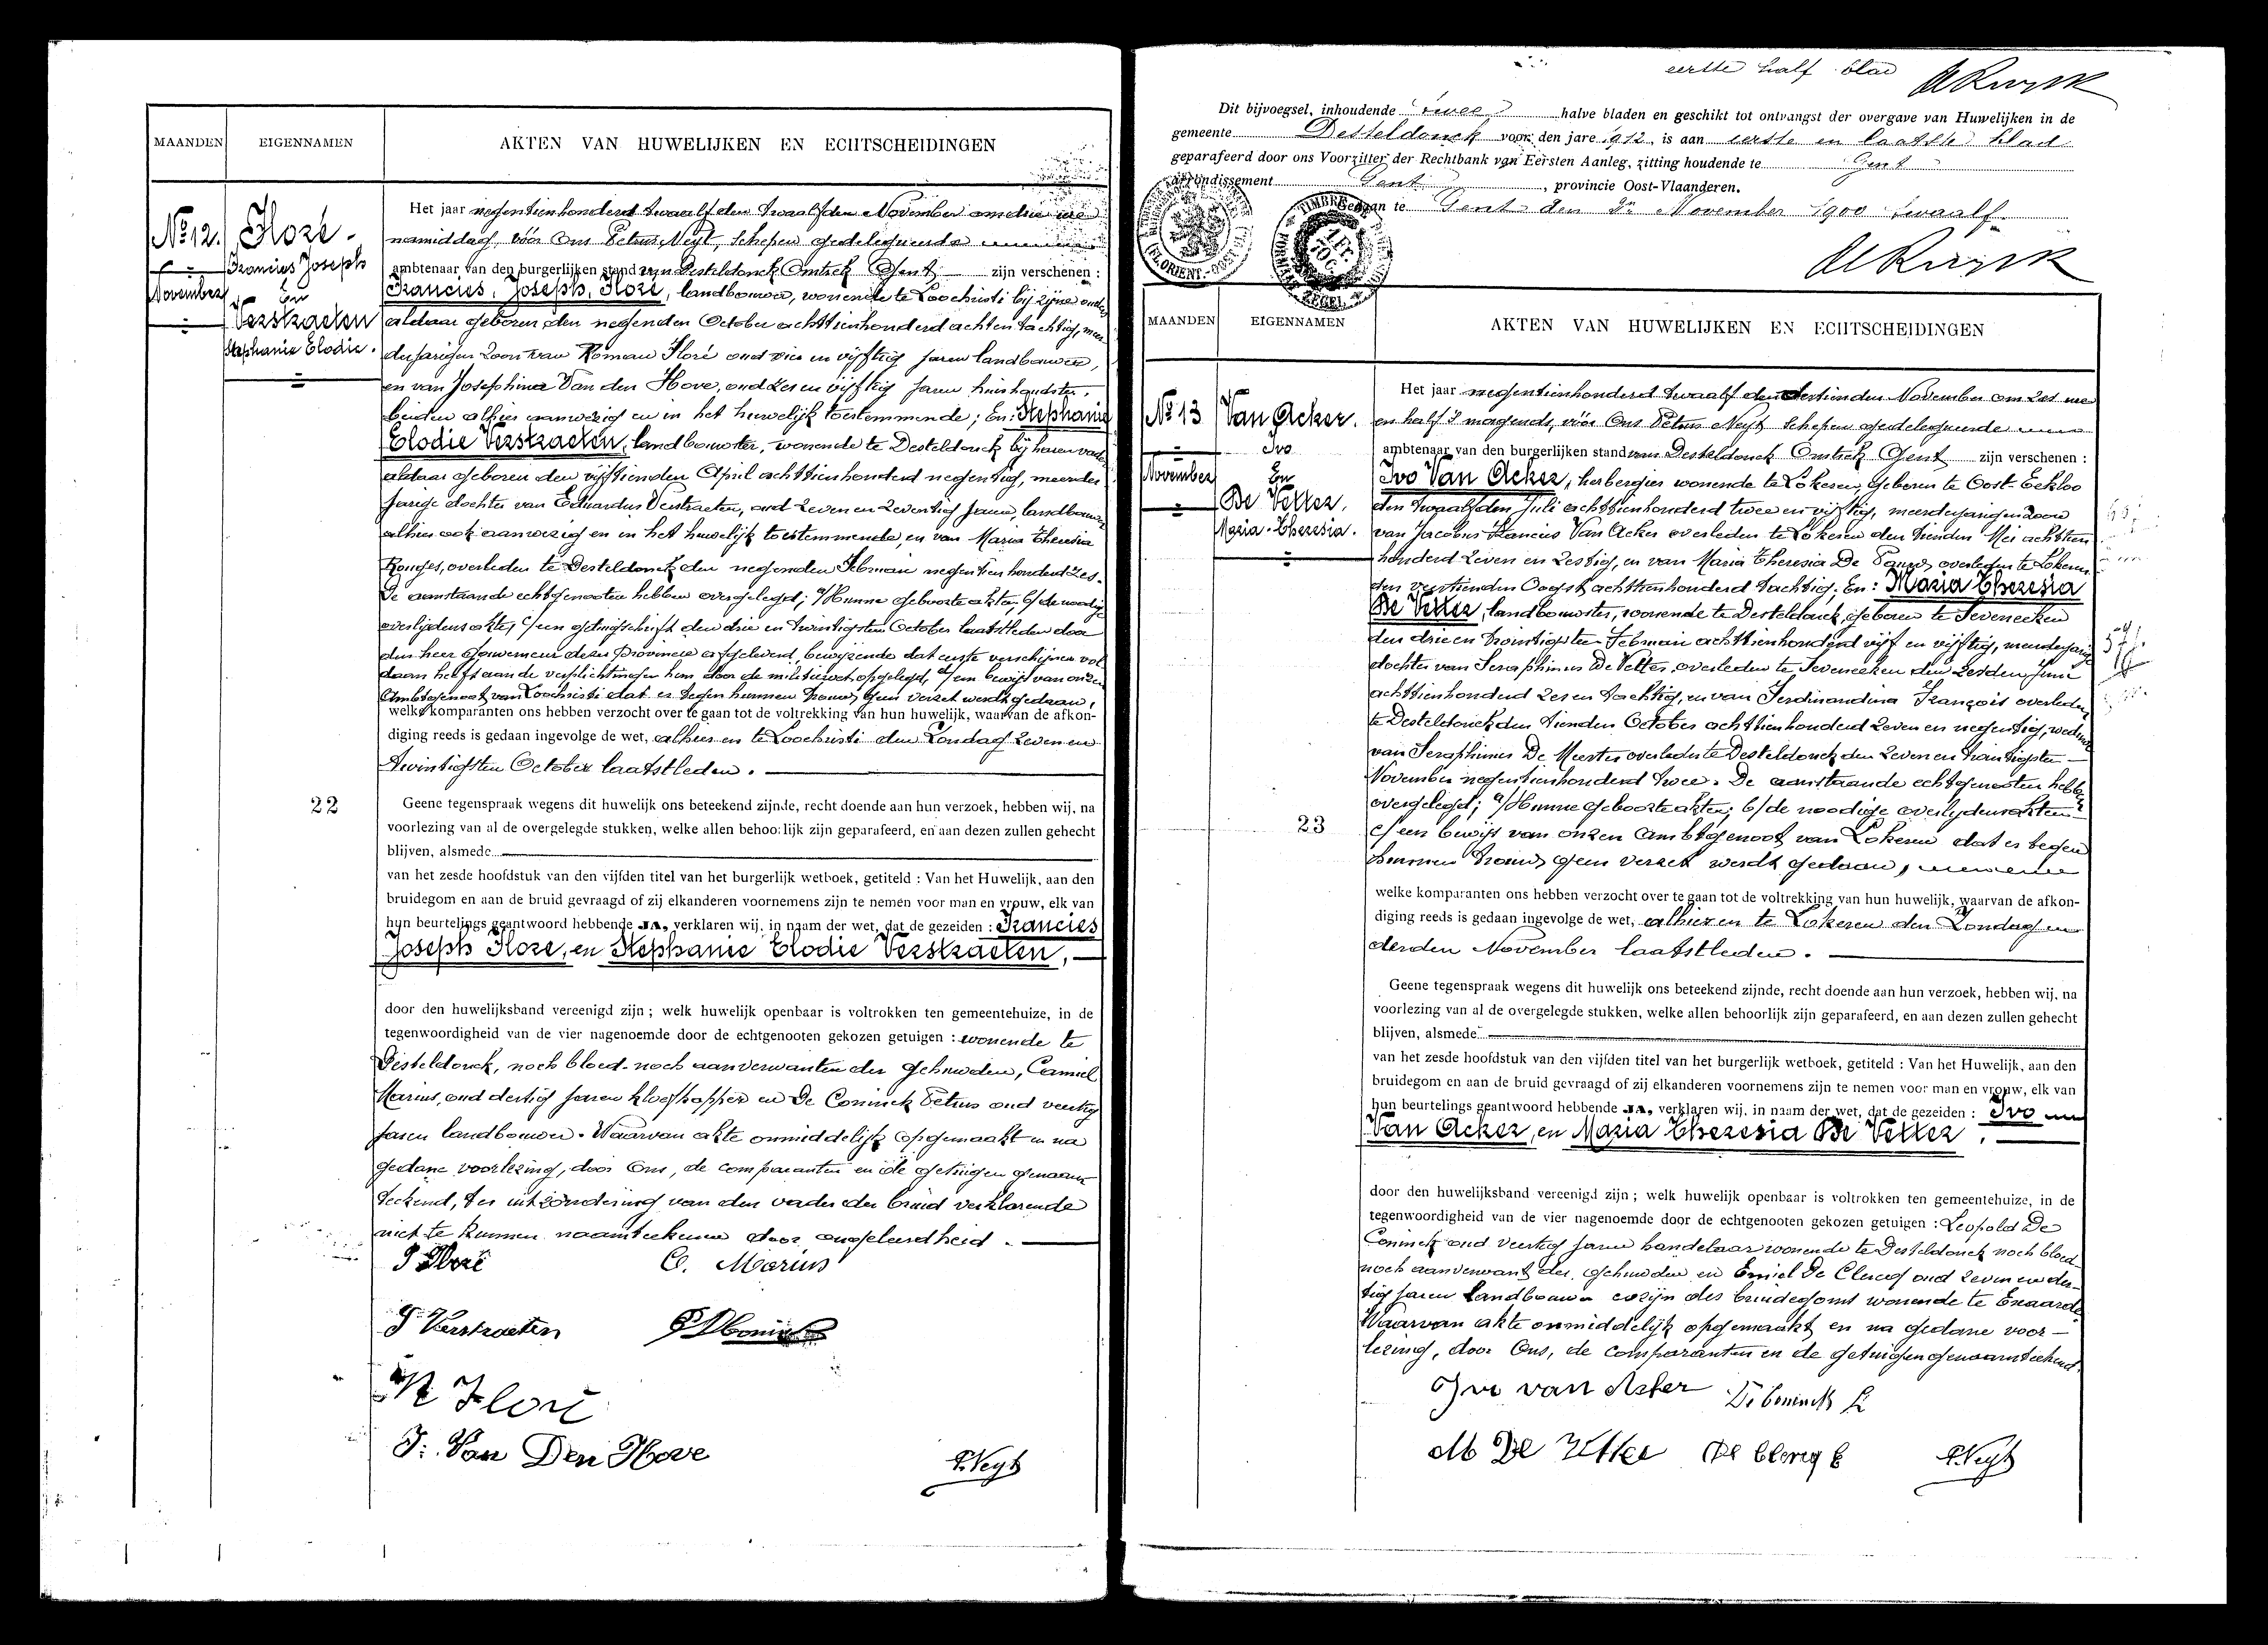 MAANDEN
EIGENNAMEN
AKTEN VAN HUWELIJKEN EN ECHTSCHEIDINGEN
No 12.
November
Floré
Francies Joseph
En
Verstraeten
Stephanie Elodie.
Het jaar negentienhonderd twaalf den twaalfden November om drie ure
namiddag, vóór Ons Petrus Neyt, Schepen gedelegueerde
ambtenaar van den burgerlijken stand van Desteldonck Omtrek Gent zijn verschenen :
Francies, Joseph, Floré, landbouwer, wonende te Loochristi bij zijne ouders
aldaar geboren den negenden October achttienhonderd achten tachtig, meer
derjarigen zoon van Roman Floré oud vier en vijftig jaren landbouwer,
en van Josephina Van den Hove, oud zes en vijftig jaren huishoudster,
beiden alhier aanwezig en in het huwelijk toestemmende; En: Stephanie
Elodie Verstraeten, landbouwster, wonende te Desteldonck bij haren vader
aldaar geboren den vijftienden April achttienhonderd negentig, meerder
jarige dochter van Eduardus Verstraeten, oud zeven en zeventig jaren, landbouwer
alhier ook aanwezig en in het huwelijk toestemmende, en van Maria Theresia
overleden te Desteldonck den negenden Februari negentienhonderd zes.
De aanstaande echtgenooten hebben overgelegd; a/ Hunne geboorteakten, b/ de noodige
overlijdensakte, c/ een getuigschrift den drie en twintigsten October laatstleden door
den heer Gouverneur dezer Provincie afgeleverd, bewijzende dat eerste verschijner vol
daan heeft aan de verplichtingen hem door de militiewet opgelegd, d/ een bewijs van onzen
Ambtgenoot van Loochristi dat er tegen hunnen trouw geen verzet werdt gedaan,
welke komparanten ons hebben verzocht over te gaan tot de voltrekking van hun huwelijk, waarvan de afkon-
diging reeds is gedaan ingevolge de wet, alhier en te Loochristi den Zondag zeven en
twintigsten October laatstleden.
22
Geene tegenspraak wegens dit huwelijk ons beteekend zijnde, recht doende aan hun verzoek, hebben wij, na
voorlezing van al de overgelegde stukken, welke allen behoorlijk zijn geparafeerd, en aan dezen zullen gehecht
blijven, alsmede
van het zesde hoofdstuk van den vijfden titel van het burgerlijk wetboek, getiteld : Van het Huwelijk, aan den
bruidegom en aan de bruid gevraagd of zij elkanderen voornemens zijn te nemen voor man en vrouw, elk van
hun beurtelings geantwoord hebbende JA, verklaren wij, in naam der wet, dat de gezeiden : Francies
Joseph Floré, en Stephanie Elodie Verstraeten,
door den huwelijksband vereenigd zijn ; welk huwelijk openbaar is voltrokken ten gemeentehuize, in de
tegenwoordigheid van de vier nagenoemde door de echtgenooten gekozen getuigen : wonende te
Desteldonck, noch bloed- noch aanverwanten der gehuwden, Camiel
Marius, oud dertig jaren kloefkapper en De Coninck Petrus oud veertig
jaren landbouwer. Waarvan akte onmiddelijk opgemaakt en na
gedane voorlezing, door Ons, de comparanten en de getuigen genaam-
teekend, ter uitzondering van den vader der bruid verklarende
niet te kunnen naamteekenen door ongeleerdheid.
J Floré
C. Marius
S Verstraeten
R Floré
J. Van Den Hove
P. Neyt
eerste half blad
Dit bijvoegsel, inhoudende twee halve bladen en geschikt tot ontvangst der overgave van Huwelijken in de
gemeente Desteldonck voor den jare 1912, is aan eerste en laatste blad
geparafeerd door ons Voorzitter der Rechtbank van Eersten Aanleg, zitting houdende te Gent
arrondissement Gent , provincie Oost-Vlaanderen.
Gedaan te Gent den 8n November 1900 twaalf.
MAANDEN
EIGENNAMEN
AKTEN VAN HUWELIJKEN EN ECHTSCHEIDINGEN
No 13
November
Van Acker.
Ivo
En
De Vetter.
Maria-Theresia.
Het jaar negentienhonderd twaalf den dertienden November om zes ure
en half 's morgends, vóór Ons Petrus Neyt Schepen gedelegueerde
ambtenaar van den burgerlijken stand van Desteldonck Omtrek Gent zijn verschenen :
Ivo Van Acker, herbergier wonende te Lokeren, geboren te Oost-Eekloo
den twaalfden Juli achttienhonderd twee en vijftig, meerderjarigen zoon
van Jacobus Francies Van Acker overleden te Lokeren den tienden Mei achttien
honderd zeven en zestig, en van Maria Theresia De Pauw, overleden te Lokeren
den veertienden Oogst achttienhonderd tachtig; En: Maria Theresia
De Vetter, landbouwster, wonende te Desteldonck, geboren te Seveneeken
den drie en twintigsten Februari achttienhonderd vijf en vijftig, meerderjarige
dochter van Seraphinus De Vetter overleden te Seveneeken den zesden Juni
achttienhonderd zes en tachtig, en van Ferdinandina François overleden
te Desteldonck den tienden October achttienhonderd zeven en negentig, weduwe
van Seraphinus De Meester overleden te Desteldonck den zeven en twintigsten
November negentienhonderd twee. De aanstaande echtgenooten hebben
overgelegd; a/ Hunne geboorteakten; b/ de noodige overlijdensakten
c/ een bewijs van onzen Ambtgenoot van Lokeren dat er tegen
hunnen trouw geen verzet werdt gedaan,
23
welke komparanten ons hebben verzocht over te gaan tot de voltrekking van hun huwelijk, waarvan de afkon-
diging reeds is gedaan ingevolge de wet, alhier en te Lokeren den Zondag
derden November laatstleden.
Geene tegenspraak wegens dit huwelijk ons beteekend zijnde, recht doende aan hun verzoek, hebben wij, na
voorlezing van al de overgelegde stukken, welke allen behoorlijk zijn geparafeerd, en aan dezen zullen gehecht
blijven, alsmede
van het zesde hoofdstuk van den vijfden titel van het burgerlijk wetboek, getiteld : Van het Huwelijk, aan den
bruidegom en aan de bruid gevraagd of zij elkanderen voornemens zijn te nemen voor man en vrouw, elk van
hun beurtelings geantwoord hebbende JA, verklaren wij, in naam der wet, dat de gezeiden : Ivo
Van Acker, en Maria Theresia De Vetter,
door den huwelijksband vereenigd zijn ; welk huwelijk openbaar is voltrokken ten gemeentehuize, in de
tegenwoordigheid van de vier nagenoemde door de echtgenooten gekozen getuigen : Leopold De
Coninck oud veertig jaren handelaar wonende te Desteldonck noch bloed-
noch aanverwant der gehuwden en Emiel De Clercq oud zeven en der-
tig jaren landbouwer cozijn des bruidegoms wonende te Exaarde
Waarvan akte onmiddelijk opgemaakt en na gedane voor-
lezing, door Ons, de comparanten en de getuigen genaamteekend.
Ivo van Acker
De Coninck L
M De Vetter
De Clercq E
P. Neyt